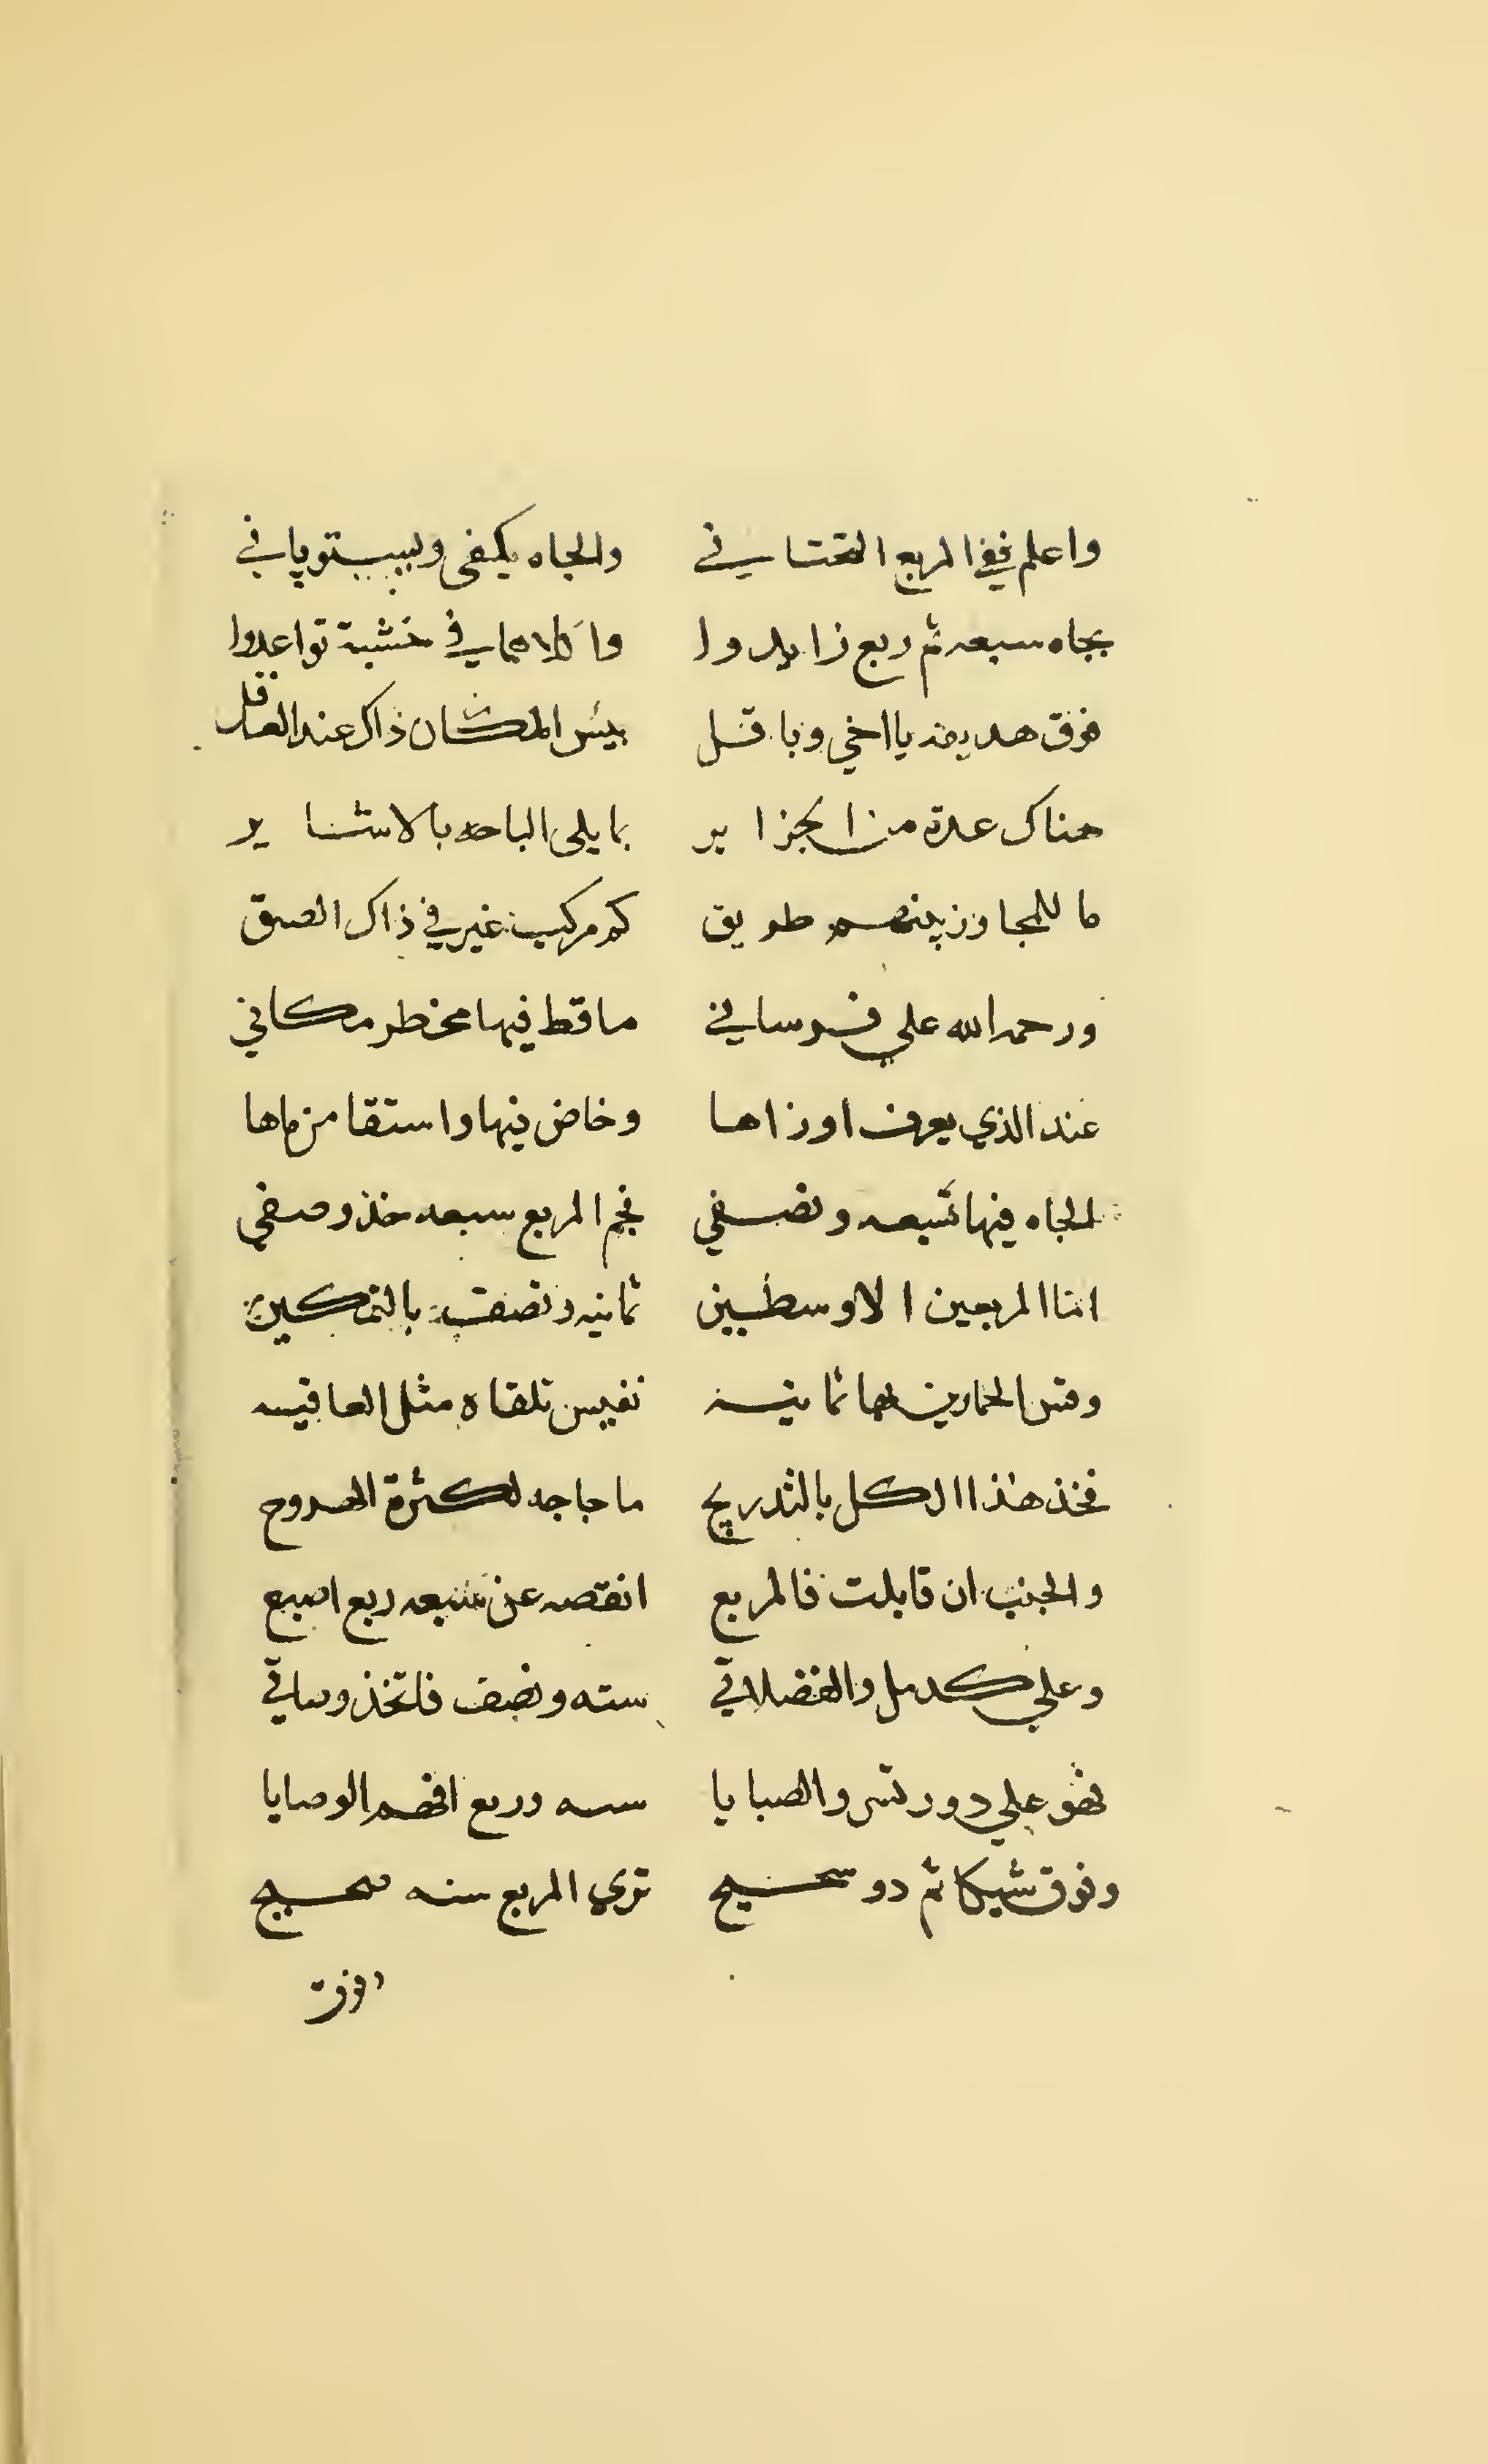 واعلم ففي المربع التحتاني والجاه يكفى
بجاه سبعه ثم ربع زايدوا في خشبة تواعدوا
فوق يا اخي وباقل بيس المكان ذاك عند العاقل
هناك عدة من الجزاير بما يلى الباحه بالاشاير
ما للمجاوز بينهم طريق كم مركب غير في ذاك الضيق
ورحمه الله على فرساني ما قط فيها مخطر مكاني
عند الذي يعرف اوزاها وخاض فيها واستقا من ماها
الجاه فيها تسعه ونصفي نجم المربع سبعه خذ وصفي
اما المربعين الاوسطين ثمانيه ونصف بالتمكين
وقس الحمارين لها ثمانيه نفيس تلقاه مثل العافيه
فخذ هذا الكل بالتدريج ما حاجه لكثرة الهروج
والجنب ان قابلت فالمربع انقصه عن سبعه ربع اصبع
وعلي كدمل والفضلاتي سته ونصف فلتخذ وساتي
فهو علي دورتس والصبايا سته وربع افهم الوصايا
وفوق شيكا ثم دو سحيح تري المربع سته صحيح
وفوق